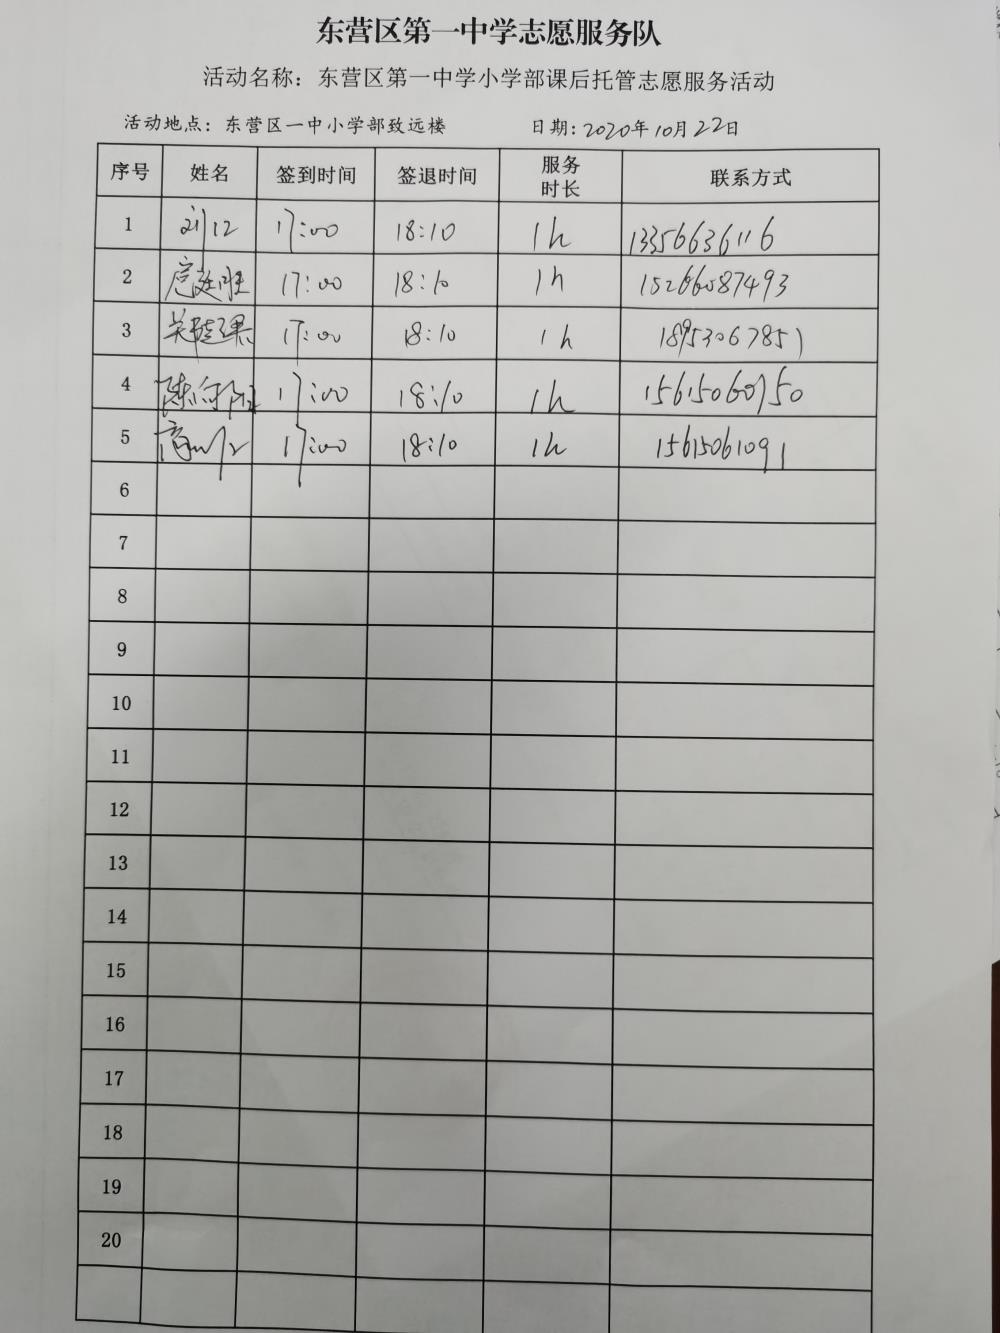 东营区第一中学志愿服务队
活动名称：东营区第一中学小学部课后托管志愿服务活动
活动地点：东营区一中小学部致远楼 日期：2020年10月22日
序号 姓名 签到时间 签退时间 服务时长 联系方式
1 刘江 17:00 18:10 1h 13356636116
2 17:00 18:10 1h 15266087493
3 17:00 18:10 1h 18953067851
4 陈向阳 17:00 18:10 1h 15615060750
5 17:00 18:10 1h 15615061091
6
7
8
9
10
11
12
13
14
15
16
17
18
19
20